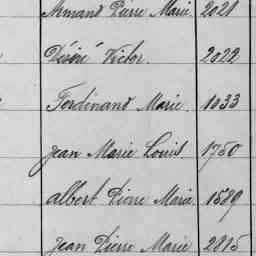 Armand Pierre Marie. 2021
Désiré Victor. 2022
Ferdinand Marie. 1033
Jean Marie Louis. 1750
Albert Pierre Marie 1589
Jean Pierre Marie 2815